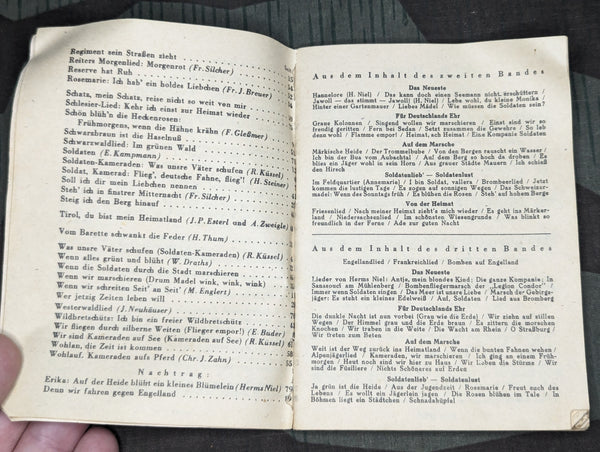 Regiment sein Straßen zieht
Reiters Morgenlied: Morgenrot (Fr. Silcher)
Reserve hat Ruh
Rosemarie: Ich hab' ein holdes Liebchen (Fr. J. Breuer)
Schatz, mein Schatz, reise nicht so weit von mir
Schlesier-Lied: Kehr ich einst zur Heimat wieder
Schön blüh'n die Heckenrosen:
Frühmorgens, wenn die Hähne krähn (F. Gleßmer)
Schwarzbraun ist die Haselnuß
Schwarzwaldlied: Im grünen Wald
Soldaten (E. Kampmann)
Soldaten-Kameraden: Was unsre Väter schufen (R. Küssel)
Soldat, Kamerad: Flieg', deutsche Fahne, flieg'! (H. Steiner)
Soll ich dir mein Liebchen nennen
Steh' ich in finstrer Mitternacht (Fr. Silcher)
Steig ich den Berg hinauf
Tirol, du bist mein Heimatland (J. P. Esterl and A. Zweigle)
Vom Barette schwankt die Feder (H. Thum)
Was unsre Väter schufen (Soldaten-Kameraden) (R. Küssel)
Wenn alles grünt und blüht (W. Draths)
Wenn die Soldaten durch die Stadt marschieren
Wenn wir marschieren (Drum Madel wink, wink, wink)
Wenn wir schreiten Seit' an Seit' (M. Englert)
Wer jetzig Zeiten leben will
Westerwaldlied (J. Neuhäuser)
Wildbretschütz: Ich bin ein freier Wildbretschütz
Wir fliegen durch silberne Weiten (Flieger empor!) (E. Buder)
Wir sind Kameraden auf See (Kameraden auf See) (R. Küssel) 61
Wohlan, die Zeit ist kommen 58
Wohlauf, Kameraden aufs Pferd (Chr. J. Zahn) 55
Nachtrag:
Erika: Auf der Heide blüht ein kleines Blümelein (Herms Niel) 79
Denn wir fahren gegen Engelland
Aus dem Inhalt des zweiten Bandes
Das Neueste
Hannelore (H. Niel) / Das kann doch einen Seemann nicht erschüttern /
Jawoll — das stimmt — Jawoll! (H. Niel) / Lebe wohl, du kleine Monika /
Hinter einer Gartenmauer / Liebes Mädel / Wie müssen die Soldaten sein?
Für Deutschlands Ehr
Graue Kolonnen / Singend wollen wir marschieren / Einst sind wir so
freudig geritten / Fern bei Sedan / Setzt zusammen die Gewehre / So leb
denn wohl / Flamme empor! / Heimat, ech Heimat / Eine Kompanie Soldaten
Auf dem Marsche
Märkische Heide / Der Trommelbube / Von den Bergen rauscht ein Wasser /
Ich bin der Bua vom Aubachtal / Auf dem Berg so hoch da droben / Es
blies ein Jäger wohl in sein Horn / Aus grauer Städte Mauern / Ich schieß
den Hirsch
Soldatenlieb' — Soldatenlust
Im Feldquartier (Annemarie) / I bin Soldat, vallera / Brombeerlied / Jetzt
kommen die lustigen Tage / Es zogen auf sonnigen Wegen / Das Schweizer-
madel: Wenn des Sonntags früh / Es blühen die Rosen / Steh' auf hohem Berge
Von der Heimat
Friesenlied / Nach meiner Heimat zieht's mich wieder / Es geht ins Märker-
land / Niedersachsenlied / Im schönsten Wiesengrunde / Was blinkt so
freundlich in der Ferne / Ade zur guten Nacht
Aus dem Inhalt des dritten Bandes
Engellandlied / Frankreichlied / Bomben auf Engelland
Das Neueste
Lieder von Herms Niel: Antje, mein blondes Kind: Die ganze Kompanie: In
Sanssouci am Mühlenberg / Bombenfliegermarsch der „Legion Condor" /
Immer wenn Soldaten singen / Das Meer ist unsre Liebe / Marsch der Gebirgs-
jäger: Es steht ein kleines Edelweiß / Auf, Soldaten / Lied aus Bromberg
Für Deutschlands Ehr
Die dunkle Nacht ist nun vorbei (Grau wie die Erde) / Wir ziehn auf stillen
Wegen / Der Himmel grau und die Erde braun / Es zittern die morschen
Knochen / Wir traben in die Weite / Die Wacht am Rhein / O Straßburg /
Wir treten zum Beten
Auf dem Marsche
Weit ist der Weg zurück ins Heimatland / Wenn die bunten Fahnen wehen /
Alpenjägerlied / Kameraden, wir marschieren / Ich ging an einem Früh-
morgen / Heut noch sind wir hier zu Haus / Wir Lüben die Stürme / Wir
sind die Füsiliere / Nichts Schöneres auf Erden
Soldatenlieb' — Soldatenlust
Ja grün ist die Heide / Aus der Jugendzeit / Rosemarie / Freut euch des
Lebens / Es wollt ein Jägerlein jagen / Die Rosen blühen im Tale / In
Böhmen liegt ein Städtchen / Schnadahüpfel